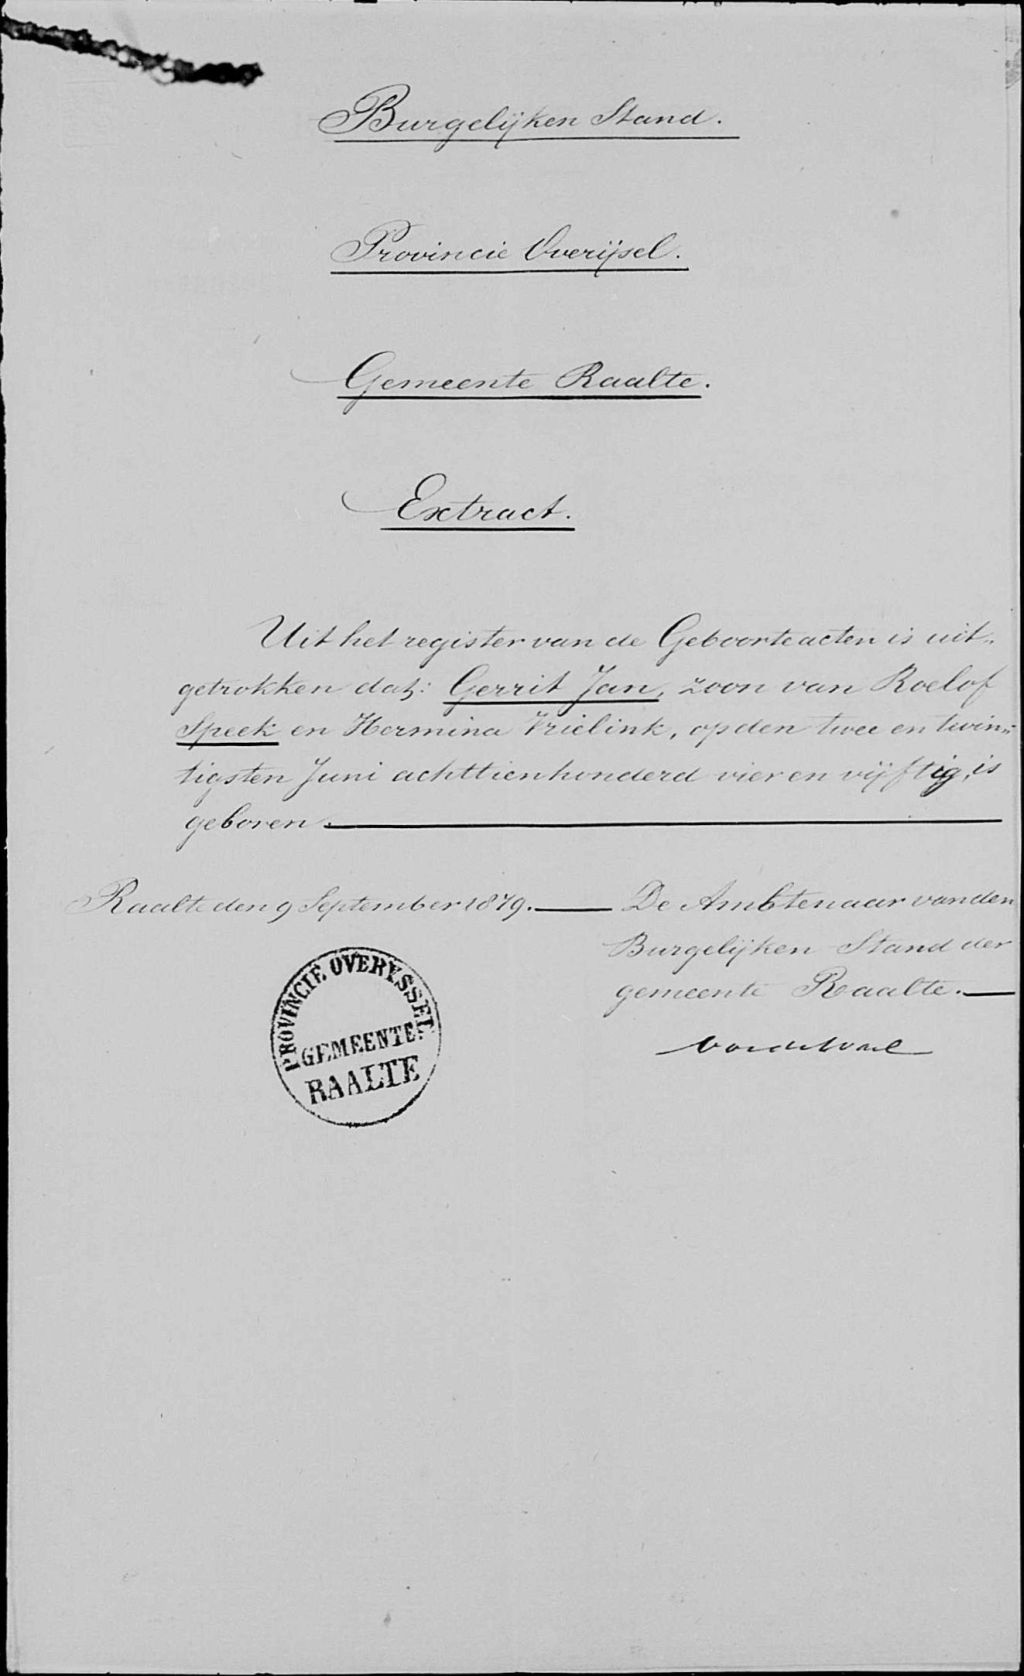 Burgelijken Stand.
Provincie Overijsel.
Gemeente Raalte.
Extract.
Uit het register van de Geboorteacten is uit-
getrokken dat: Gerrit Jan, zoon van Roelof
Speek en Hermina Vrielink, op den twee en twin-
tigsten Juni achttienhonderd vier en vijftig, is
geboren.
Raalte den 9 September 1879. De Ambtenaar van den
Burgelijken Stand der
gemeente Raalte.
PROVINCIE OVERYSSEL
GEMEENTE
RAALTE